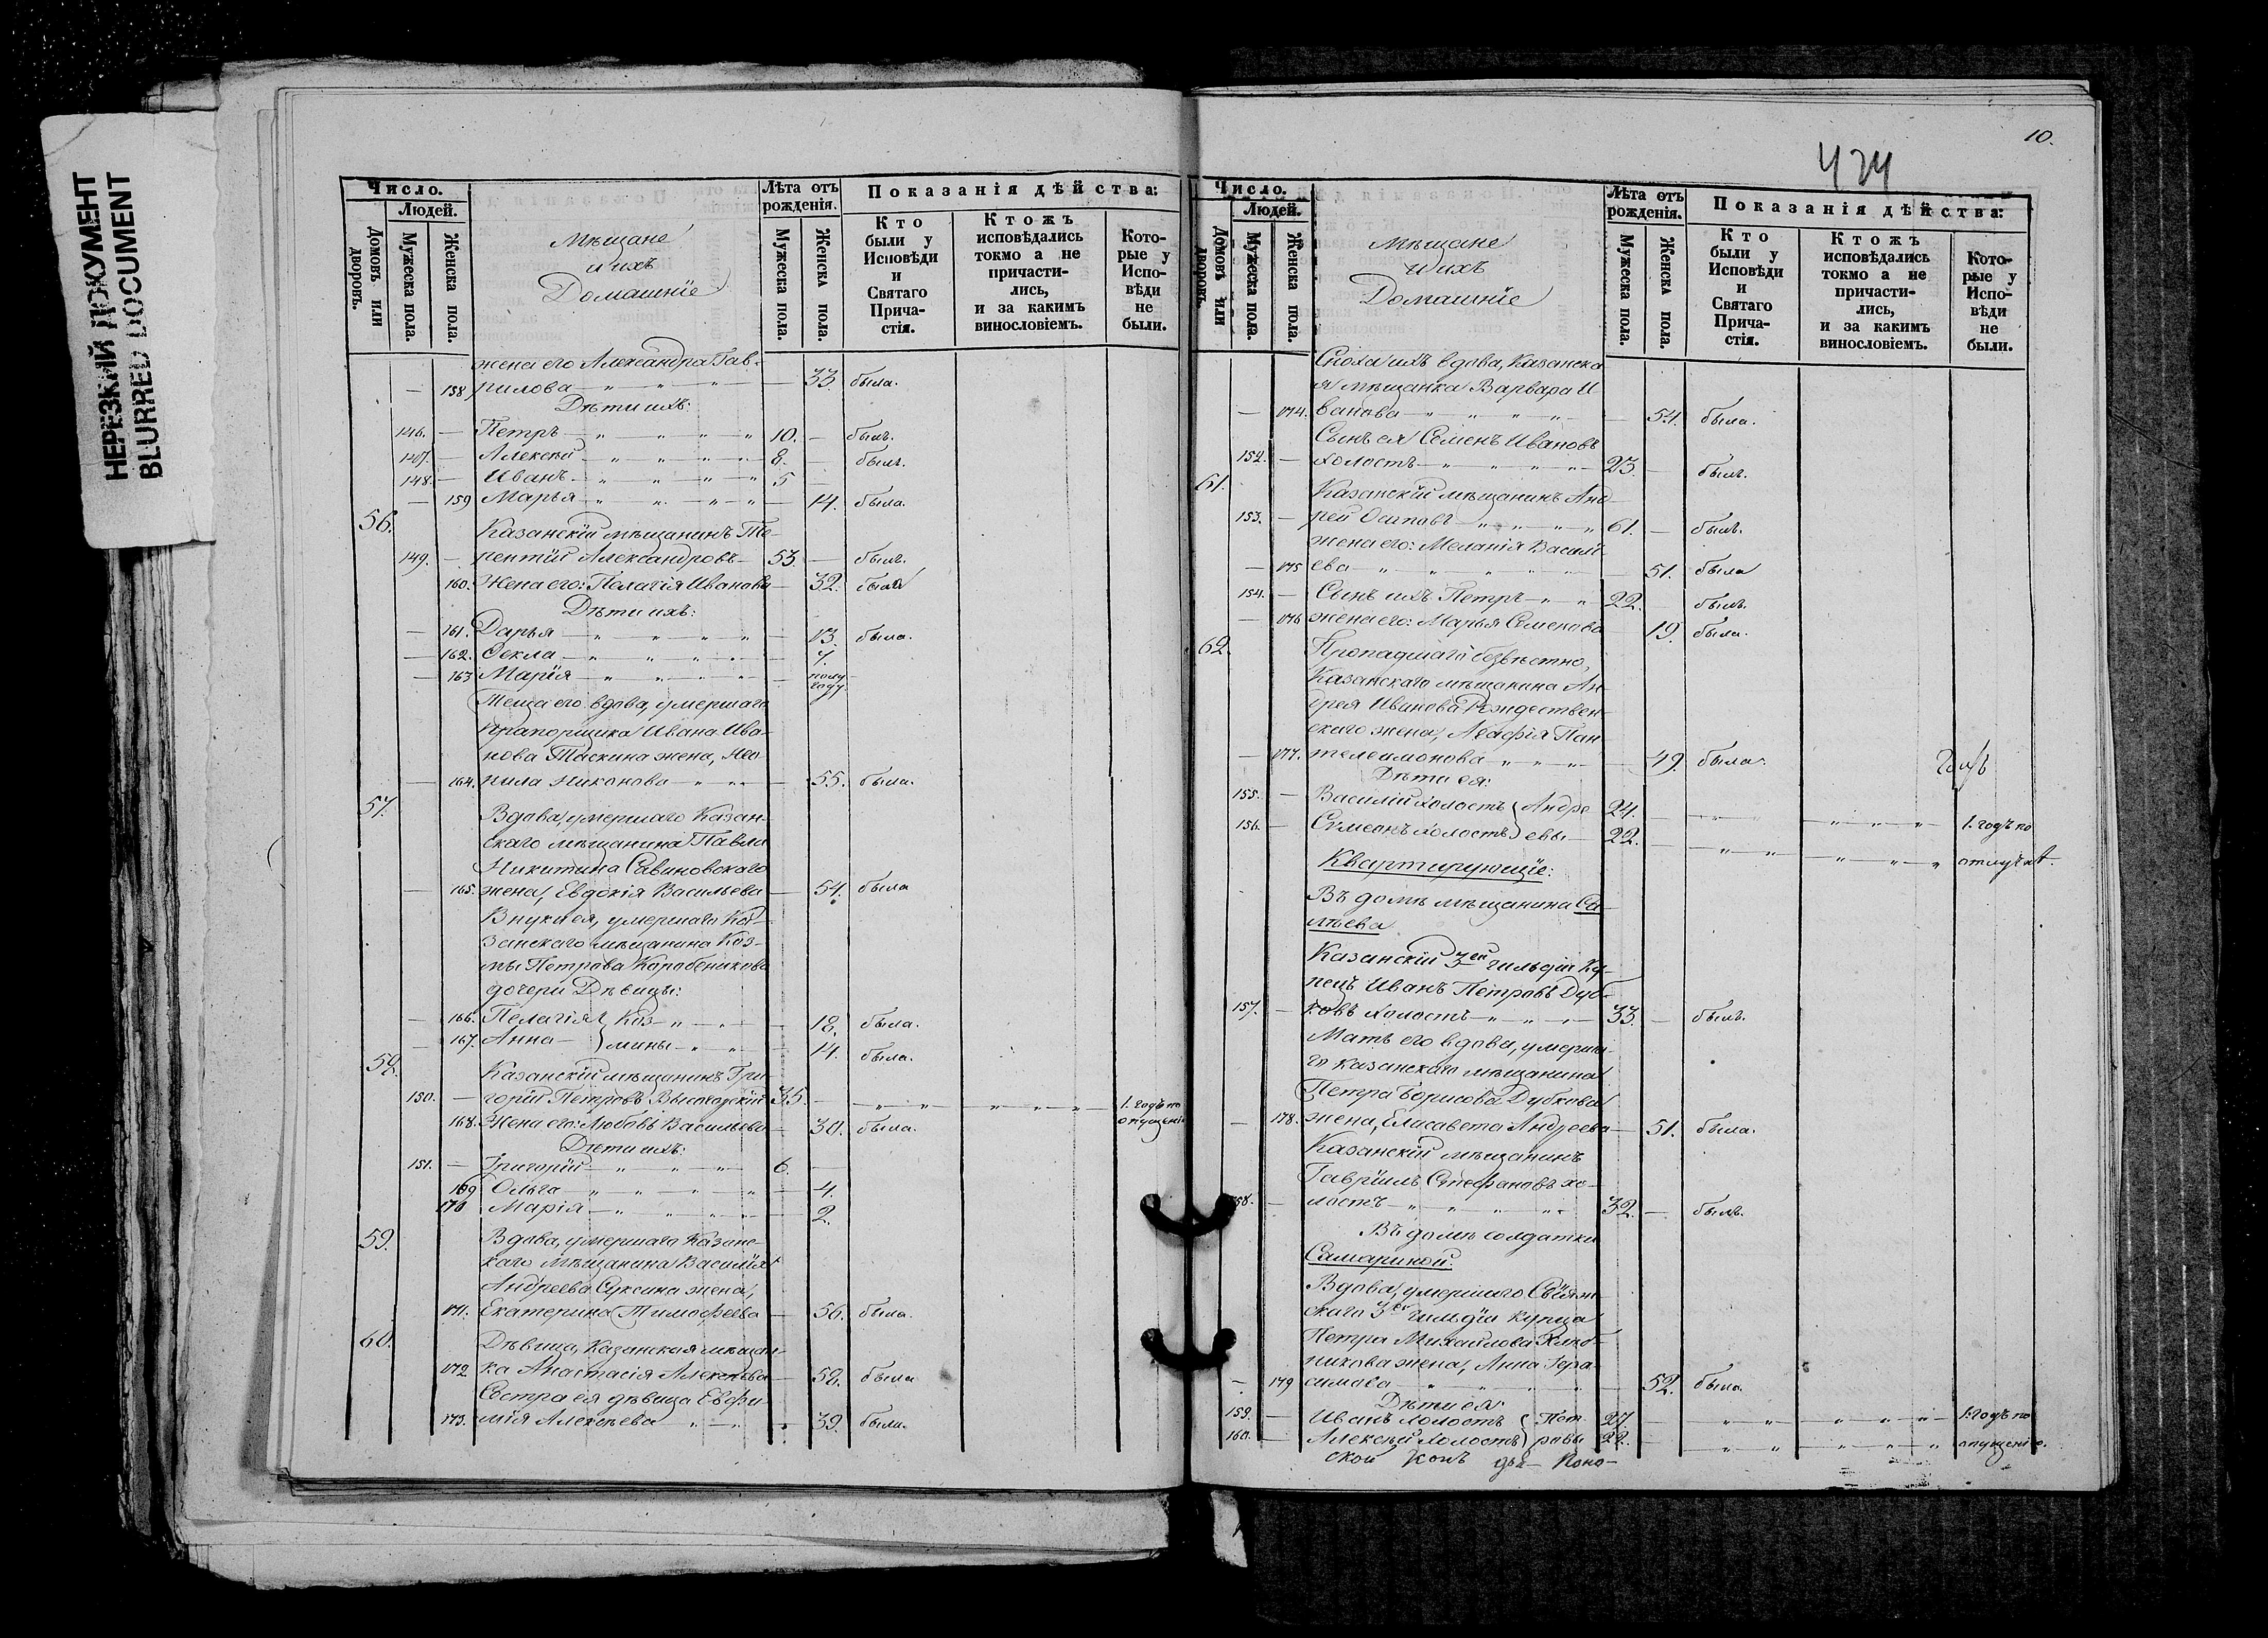 НЕРЕЗКИЙ ДОКУМЕНТ
BLURRED DOCUMENT
Число.
Людей.
Домовъ или дворовъ.
Мужеска пола.
Женска пола.
Мѣщане
и ихъ
Домашніе
Лѣта отъ рожденія.
Мужеска пола.
Женска пола.
Показанія дѣйства:
Кто были у Исповѣди и Святаго Прича-стія.
Ктожъ исповѣдались токмо а не причасти-лись, и за какимъ винословіемъ.
Кото-рые у Испо-вѣди не были.
жена его Александра Гав-
158 рилова 33. была.
Дѣти ихъ:
146. Петръ 10. былъ.
147. Алексѣй 8. былъ.
148. Иванъ 5
159 Марья 14. была.
56. Казанскій мѣщанинъ Те-
149. рентій Александровъ 53. былъ.
160. Жена его: Пелагія Иванова 32. была
Дѣти ихъ:
161. Дарья 13. была.
162. Ѳекла 7.
163 Марія полу-
году.
Теща его вдова, умершаго
Прапорщика Ивана Ива-
нова Таскина жена, Нео-
164. нила Никонова 55. была.
57. Вдова, умершаго Казан-
скаго мѣщанина Павла
Никитина Савиновскаго
165. жена, Евдокія Васильева 54. была
Внуки ея, умершаго Ка-
занскаго мѣщанина Коз-
мы Петрова Коробеникова
дочери Дѣвицы:
166. Пелагія Коз- 18. была.
167. Анна мины 14. была.
58. Казанскій мѣщанинъ Гри-
150. горій Петровъ Высоцкій 35. 1. годъ по
168. Жена его: Любовь Васильева 30. была. опущенію
Дѣти ихъ:
151. Григорій 6.
169 Ольга 4.
170 Марія 2.
59. Вдова, умершаго Казанс-
каго мѣщанина Василія
Андреева Суксина жена,
171. Екатерина Тимофеева 56. была.
60. Дѣвица, Казанская мѣщан-
172 ка Анастасія Алексѣева 58. была
Сестра ея дѣвица Евфи-
173. мія Алексѣева 39. была.
10.
424
Число.
Людей.
Домовъ или дворовъ.
Мужеска пола.
Женска пола.
Мѣщане
и ихъ
Домашніе
Лѣта отъ рожденія.
Мужеска пола.
Женска пола.
Показанія дѣйства:
Кто были у Исповѣди и Святаго Прича-стія.
Ктожъ исповѣдались токмо а не причасти-лись, и за какимъ винословіемъ.
Кото-рые у Испо-вѣди не были.
Сноха ихъ вдова, Казанска-
я мѣщанка Варвара И-
174. ванова 54. была.
Сынъ ея Семенъ Ивановъ
152. холостъ 23. былъ.
61. Казанскій мѣщанинъ Анд-
153. рей Осиповъ 61. былъ.
жена его: Меланія Василі-
175 ева 51. была
154. Сынъ ихъ Петръ 22. былъ.
176 жена его: Марья Семенова 19. была.
62. Пропадшаго безвѣстно,
Казанскаго мѣщанина Ан-
дрея Иванова Рождествен-
скаго жена, Агафія Пан-
177. телеимонова 49. была.
Дѣти ея:
155. Василій холостъ Андре 24. 1. годъ по
156. Симеонъ холостъ евы 22. отлучкѣ.
Квартирующіе:
Въ домѣ мѣщанина Са-
Казанскій 3ей гильдіи Ку-
пецъ Иванъ Петровъ Дуб-
157. ковъ холостъ 33. былъ.
Мать его вдова, умерша-
го казанскаго мѣщанина
Петра Борисова Дубкова
178. жена, Елисавета Андреева 51. была.
Казанскій мѣщанинъ
Гавріилъ Стефановъ хо-
158. лостъ 32. былъ.
Въ домѣ солдатки
Самариной:
Вдова, умершаго Свіяж-
скаго 3ей гильдіи купца
Петра Михайлова Хлѣб-
никова жена, Анна Гера-
179 симова 52. была.
Дѣти ея:
159. Иванъ холостъ Пет- 27. 1. годъ по
160. Алексѣй холостъ ровы 22. опущенію.
ской